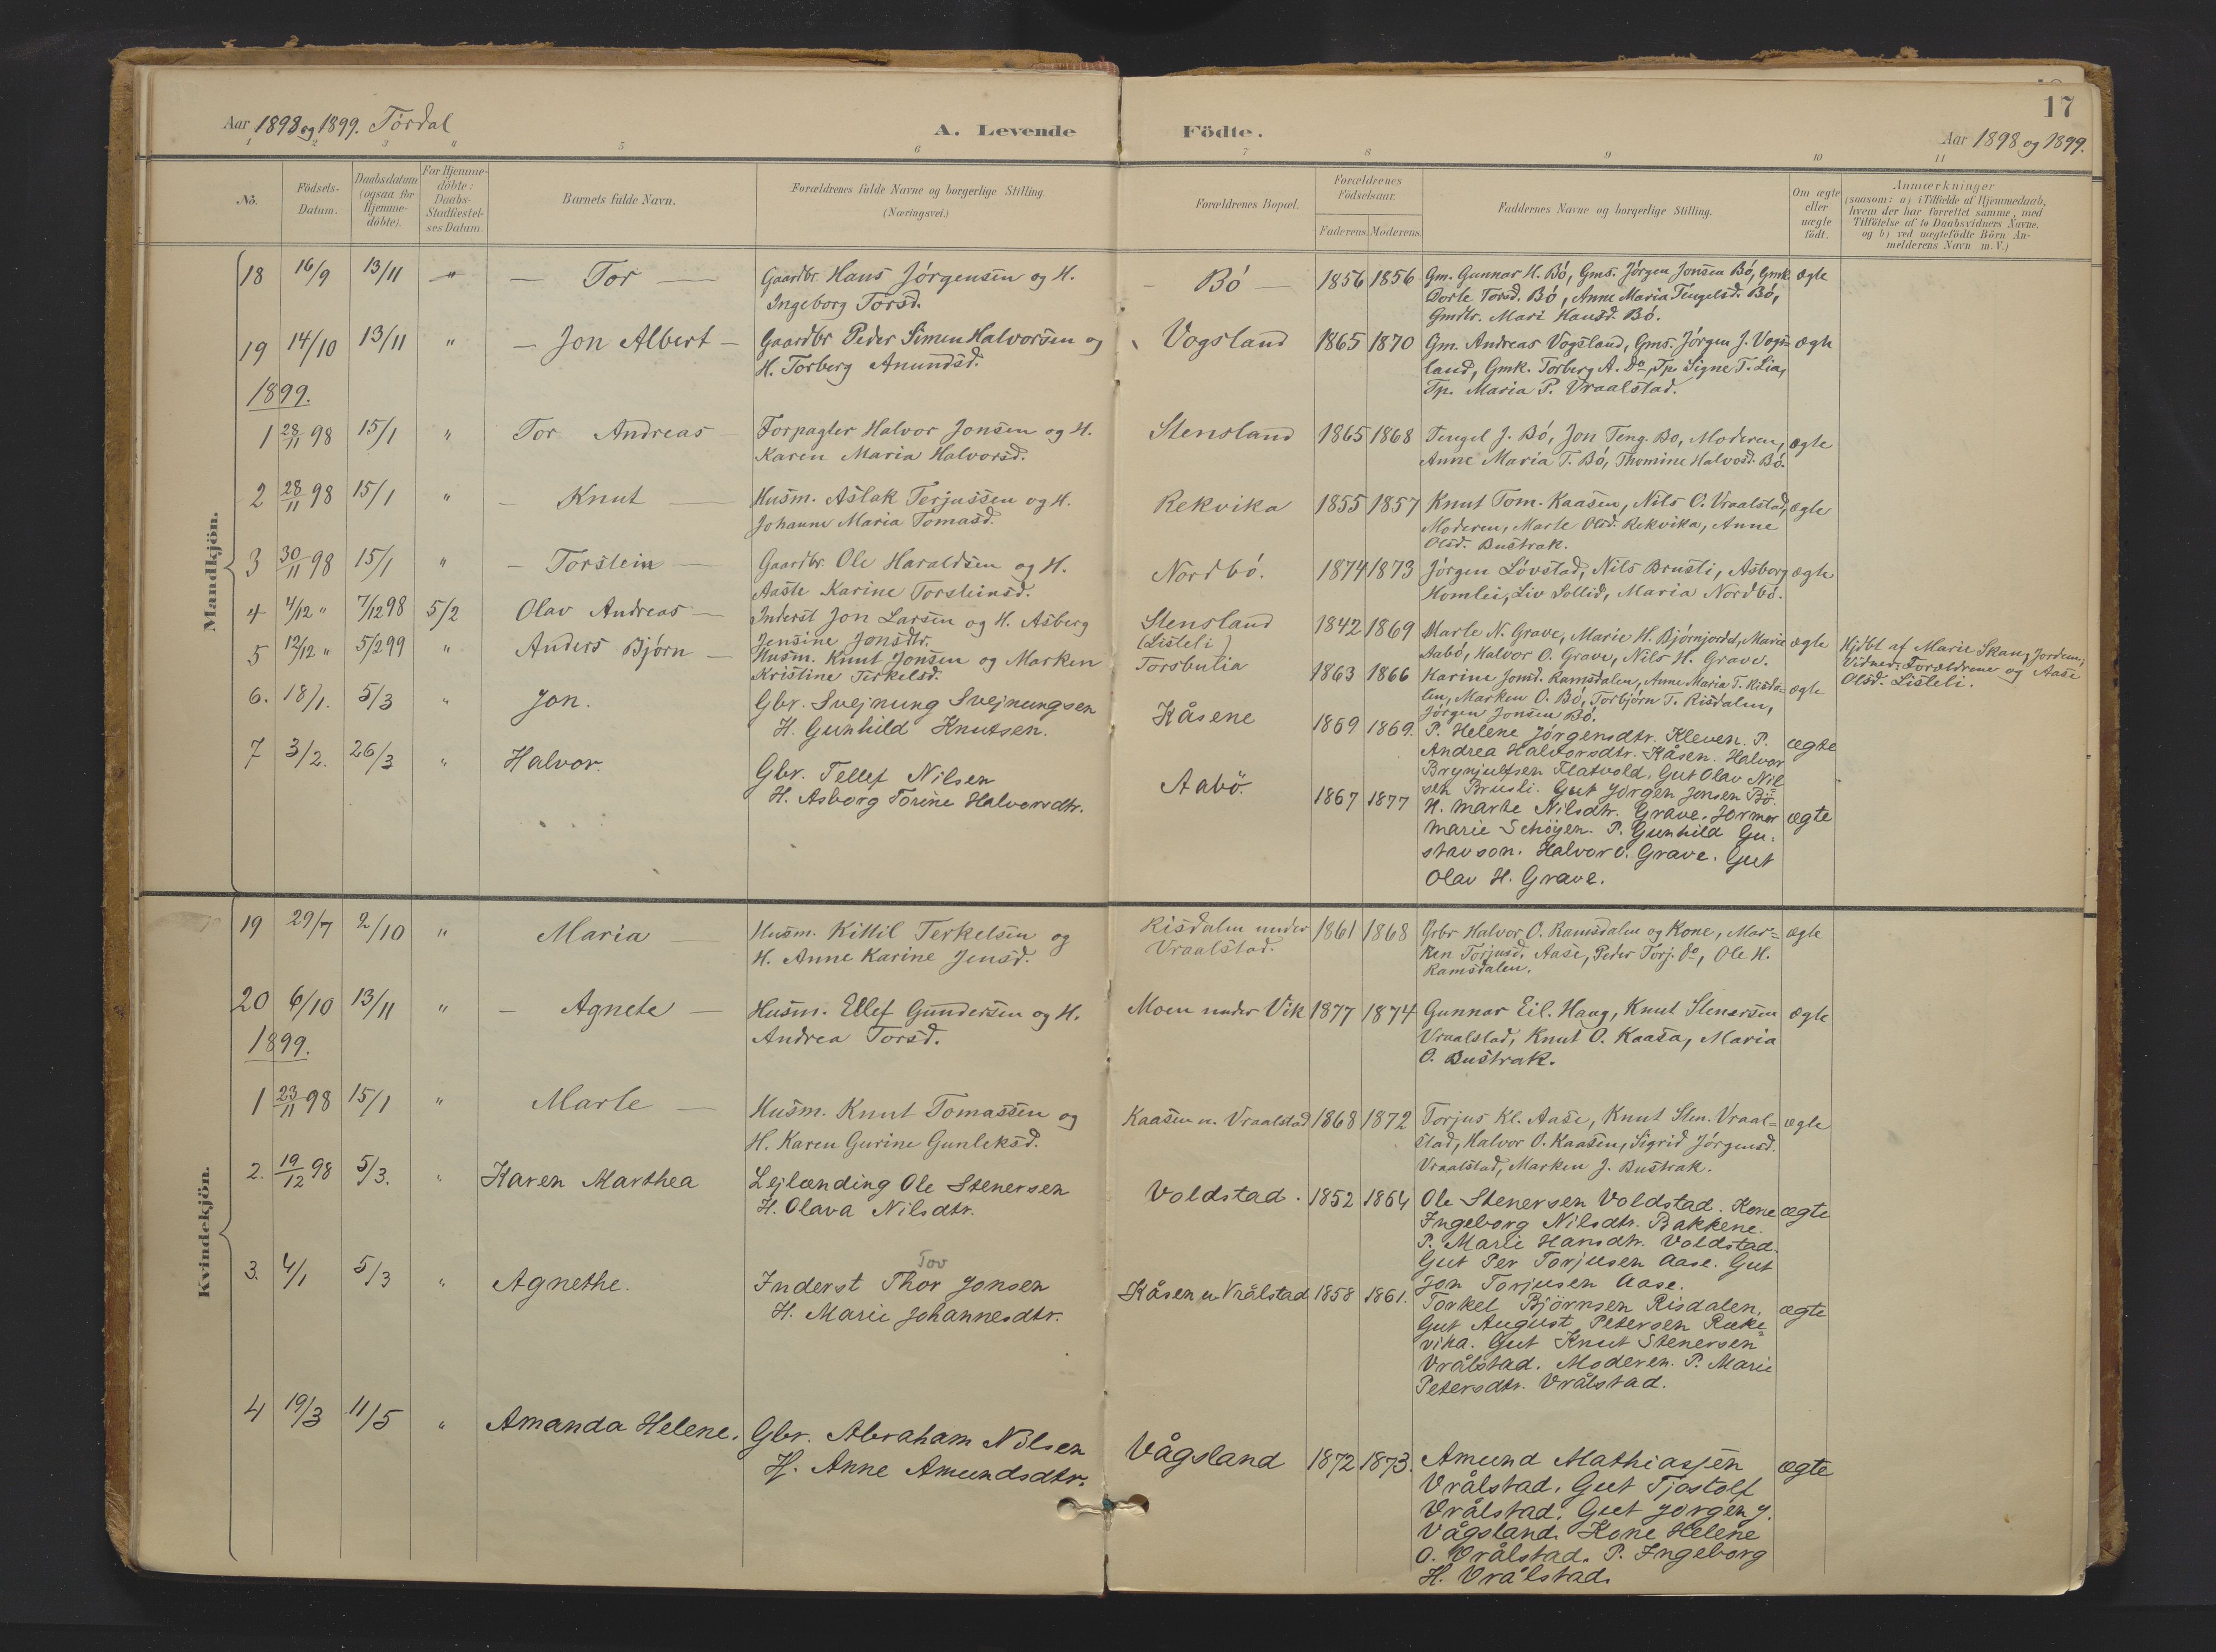 Aar 1898 og 1899. Tördal
A. Levende Födte.
17
Aar 1898 og 1899.
1 2 3 4 5 6 7 8 9 10 11
No.
Födsels-Datum.
Daabsdatum (ogsaa for Hjemme-döbte).
For Hjemme-döbte: Daabs-Stadfæstel-ses Datum
Barnets fulde Navn.
Forældrenes fulde Navne og borgerlige Stilling.
(Næringsvei.)
Forældrenes Bopæl.
Forældrenes Födselsaar.
Faderens. Moderens.
Faddernes Navne og borgerlige Stilling.
Om ægte eller uægte födt.
Anmærkninger
(saasom: a) i Tilfælde af Hjemmedaab,
hvem der har forrettet samme, med
Tilföielse af to Daabsvidners Navne.
og b) ved uægtefödte Börn An-
melderens Navn m. V.)
Mandkjön.
18 16/9 13/11 " — Tor — Gaardbr. Hans Jörgensen og H. — Bö — 1856 1856 Gm. Gunnar H. Bö, Gms. Jörgen Jonsen Bö, Gmk. ægte
Ingeborg Torsd. Dorte Torsd. Bö, Anne Maria Tengelsd. Bö,
Gmdtr. Mari Hansd. Bö.
19 14/10 13/11 " — Jon Albert — Gaardbr Peder Simen Halvorsen og Vogsland 1865 1870 Gm. Andreas Vogsland, Gms. Jörgen J. Vogs= ægte
H. Torberg Anundsd. land, Gmk. Torberg A. Do, Tp. Signe T. Lia,
Tp. Maria P. Vraalstad.
1899.
1 28/11 98 15/1 " Tor Andreas — Forpagter Halvor Jonsen og H. Stensland 1865 1868 Tengel J. Bö, Jon Teng. Bö, Moderen, ægte
Karen Maria Halvorsd. Anne Maria T. Bö, Thomine Halvosd. Bö.
2 28/11 98 15/1 " — Knut — Husm. Aslak Terjussen og H. Rekvika 1855 1857 Knut Tom. Kaasen, Nils O. Vraalstad, ægte
Johanne Maria Tomasd. Moderen, Marte Olsd. Rekvika, Anne
Olsd. Bustrak.
3 30/11 98 15/1 " — Torstein — Gaardbr. Ole Haraldsen og H. Nordbö. 1874 1873 Jörgen Lövstad, Nils Brusli, Asborg ægte
Aaste Karine Torsteinsd. Homlei, Liv Sollid, Maria Nordbö.
4 4/12 " 7/12 98 5/2 Olav Andreas — Inderst Jon Larsen og H. Asberg Stensland 1842 1869 Marte N. Grave, Marie H. Bjørnjordet, Marie ægte Hjdbt af Marie Skau, Jordem;
Jensine Jonsdtr. (Listeli) Aabö, Halvor O. Grave, Nils H. Grave. Vidner: Forældrene og Aase
Olsd. Listeli.
5 12/12 " 5/2 99 " Anders Bjørn — Husm. Knut Jonsen og Marken Torsbulia 1863 1866 Karine Jomd. Ramsdalen, Anne Maria T. Risda= ægte
Kristine Terkelsd. len, Marken O. Bö, Torbjörn T. Risdalen,
Jörgen Jonsen Bö.
6. 18/1. 5/3 " Jon. Gbr. Svejnung Svejnungsen Kåsene 1869 1869. P. Helene Jörgensdtr. Kleven. P. ægte
H. Gunhild Knutsen. Andrea Halvorsdtr. Kåsen. Halvor
Brynjulfsen Flatvold. Gut Olav Nil=
sen Brusli. Gut Jörgen Jonsen Bö.
7 3/2. 26/3 " Halvor. Gbr. Tellef Nilsen Aabö. 1867 1877 H. Marte Nilsdtr. Grave. Jormor ægte
H. Asborg Torine Halvorsdtr. Marie Schöyen. P. Gunhild Gu=
stavson. Halvor O. Grave. Gut
Olav H. Grave.
Kvindekjön.
19 29/7 2/10 " Maria — Husm. Kittil Terkelsen og Risdalen under 1861 1868 Grbr Halvor O. Ramsdalen og Kone, Mar= ægte
H. Anne Karine Jensd. Vraalstad. ken Torjusd. Aase, Peder Torj. do, Ole H.
Ramsdalen.
20 6/10 13/11 " — Agnete — Husm. Ellef Gundersen og H. Moen under Vik 1877 1874 Gunnar Eil. Haug, Knut Stenersen ægte
Andrea Torsd. Vraalstad, Knut O. Kaasa, Maria
O. Bustrak.
1899.
1 23/11 98 15/1 " Marte — Husm. Knut Tomassen og Kaasen u. Vraalstad 1868 1872 Torjus Kl. Aase, Knut Sten. Vraal= ægte
H. Karen Gurine Gunleksd. stad, Halvor O. Kaasen, Sigrid Jörgensd.
Vraalstad, Marken J. Bustrak.
2. 19/12 98 5/3. " Karen Marthea Lejlænding Ole Stenersen Voldstad. 1852 1864 Ole Stenersen Voldstad. Kone ægte
H. Olava Nilsdtr. Ingeborg Nilsdtr. Bakkene.
P. Marie Hansdtr. Voldstad.
Gut Per Torjusen Aase. Gut
Jon Torjusen Aase.
Tov
3. 4/1 5/3 " Agnethe. Inderst Thor Jonsen Kåsen u. Vrålstad 1858 1861. Torkel Björnsen Risdalen, ægte
H. Marie Johannesdtr. Gut August Petersen Ræke=
vika. Gut Knut Stenersen
Vrålstad. Moderen. P. Marie
Petersdtr. Vrålstad.
4 19/3 11/5 " Amanda Helene. Gbr. Abraham Nilsen Vågsland 1872 1873. Amund Mathiassen ægte
H. Anne Amundsdtr. Vrålstad. Gut Tjostolf
Vrålstad. Gut Jörgen J.
Vågsland. Kone Helene
O. Vrålstad. P. Ingeborg
H. Vrålstad.